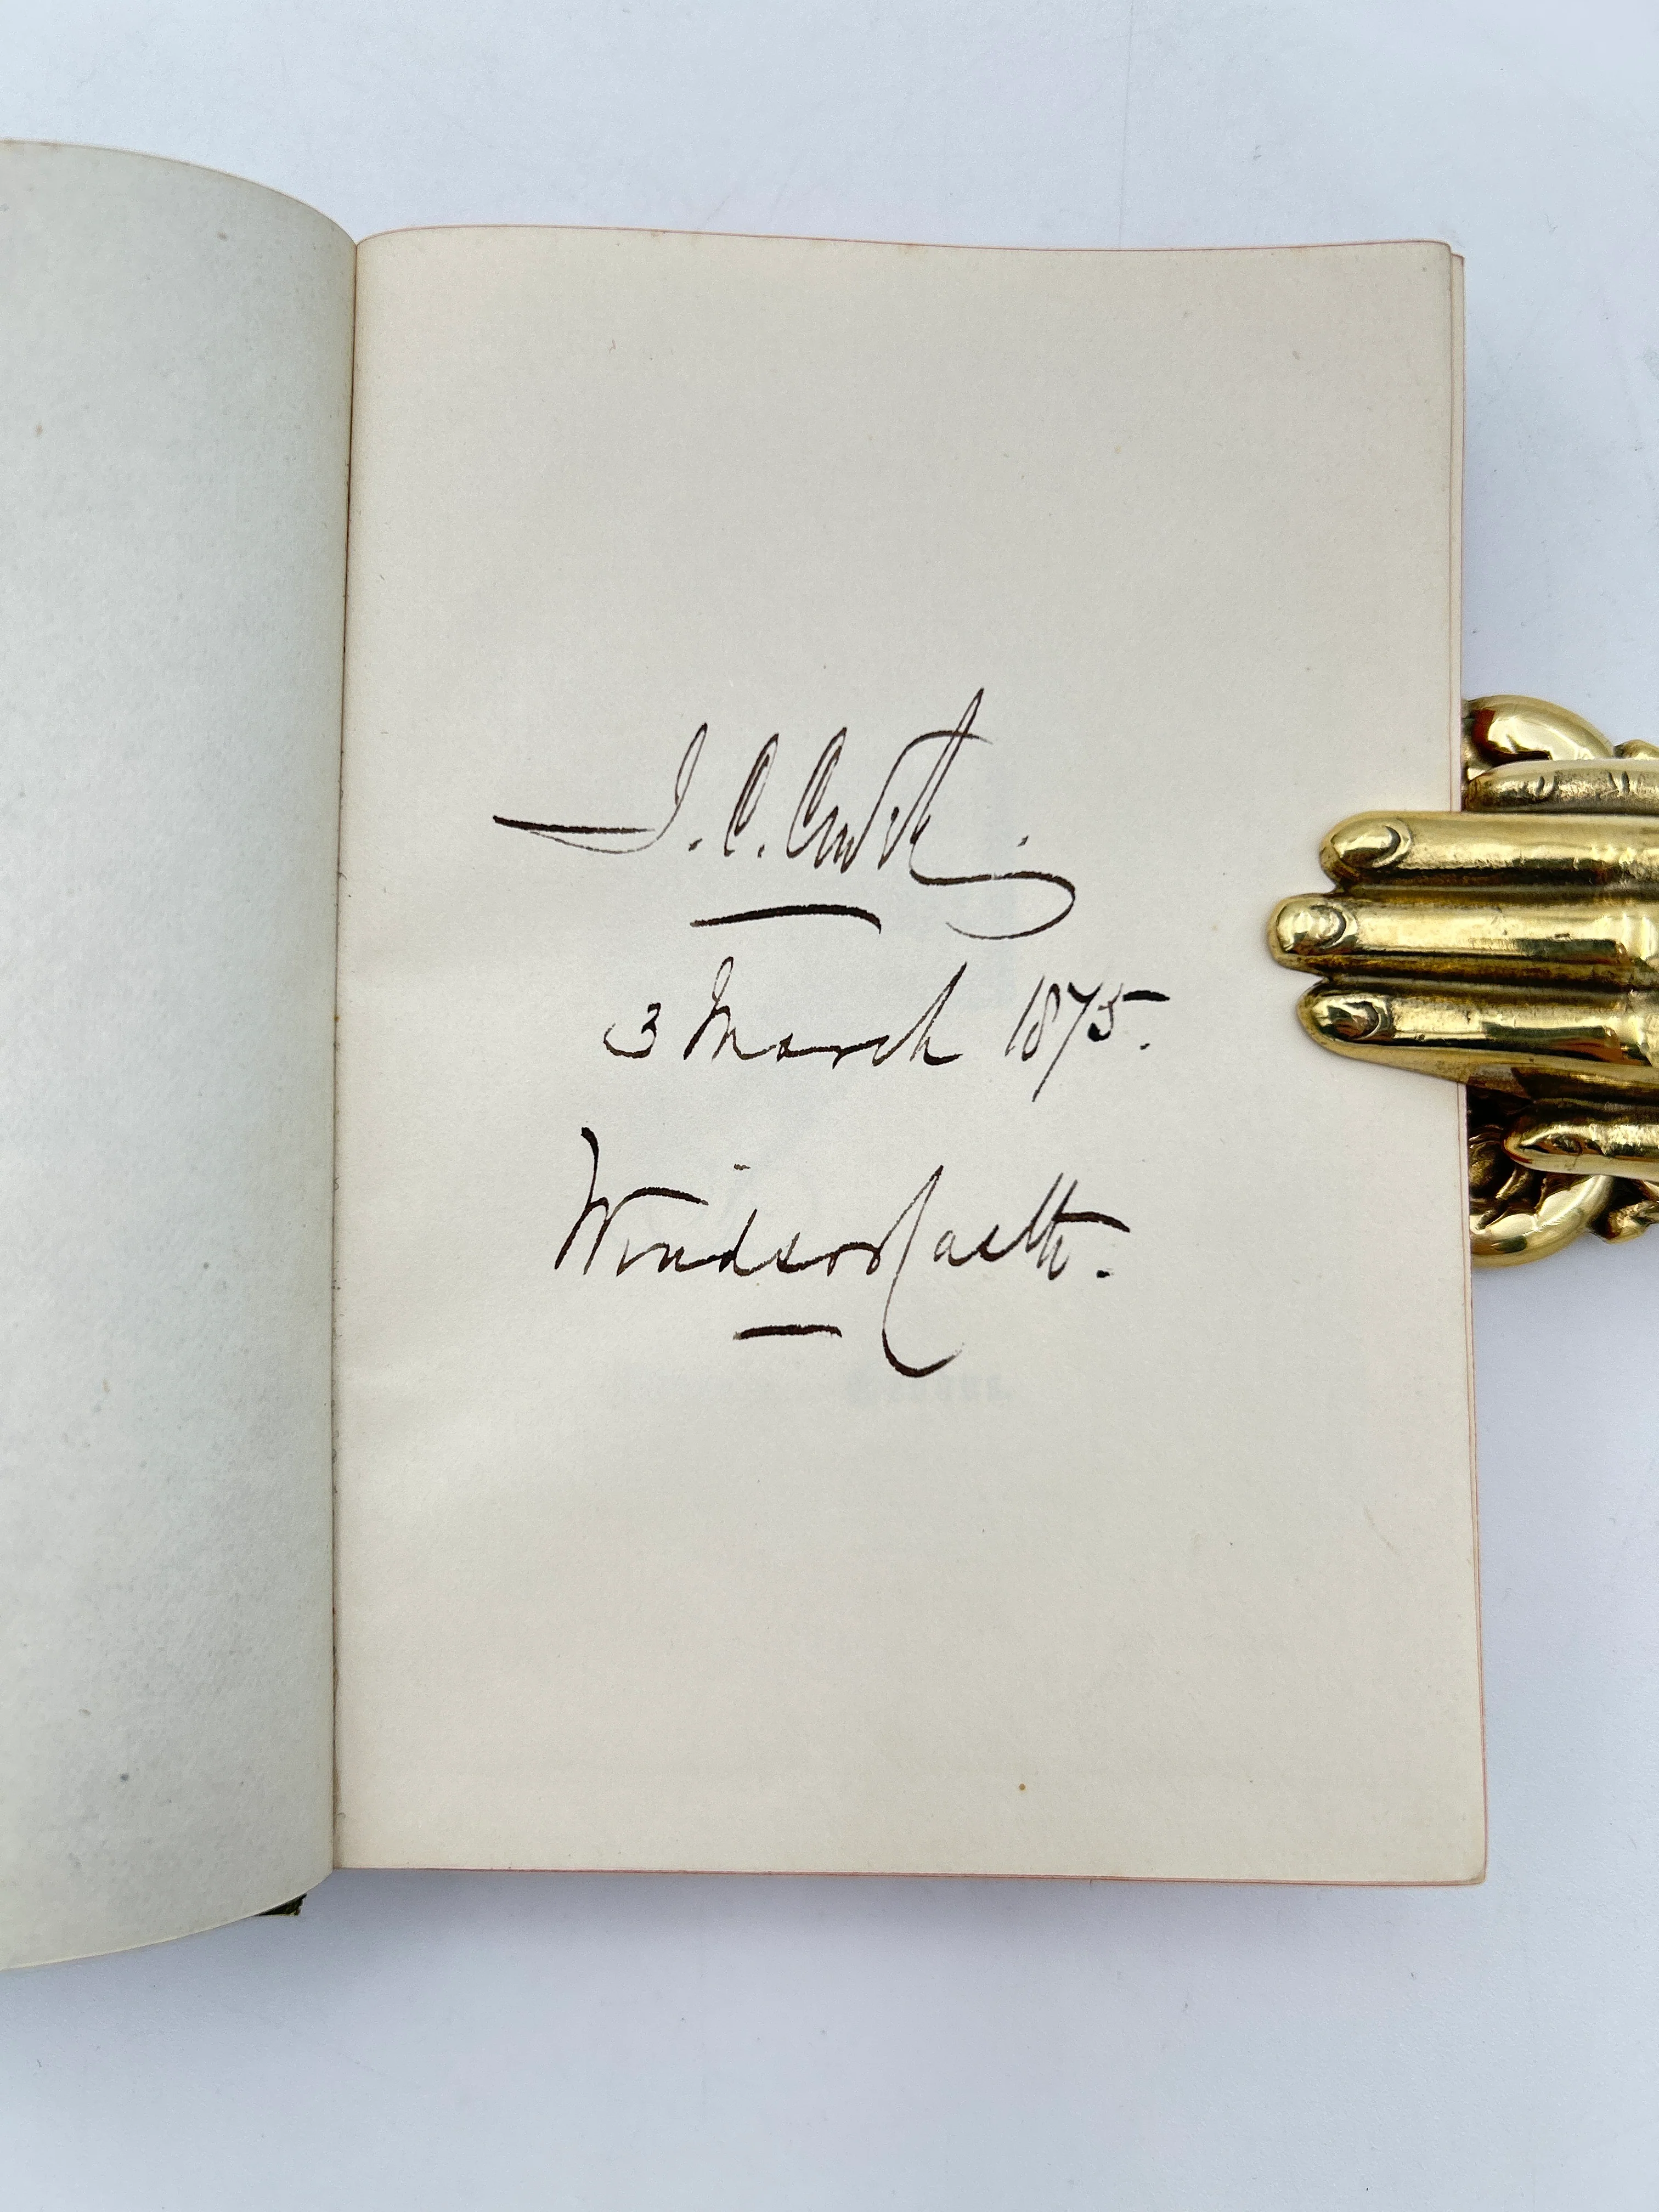 J. C. Cowell
3 March 1875.
Windsor Castle.